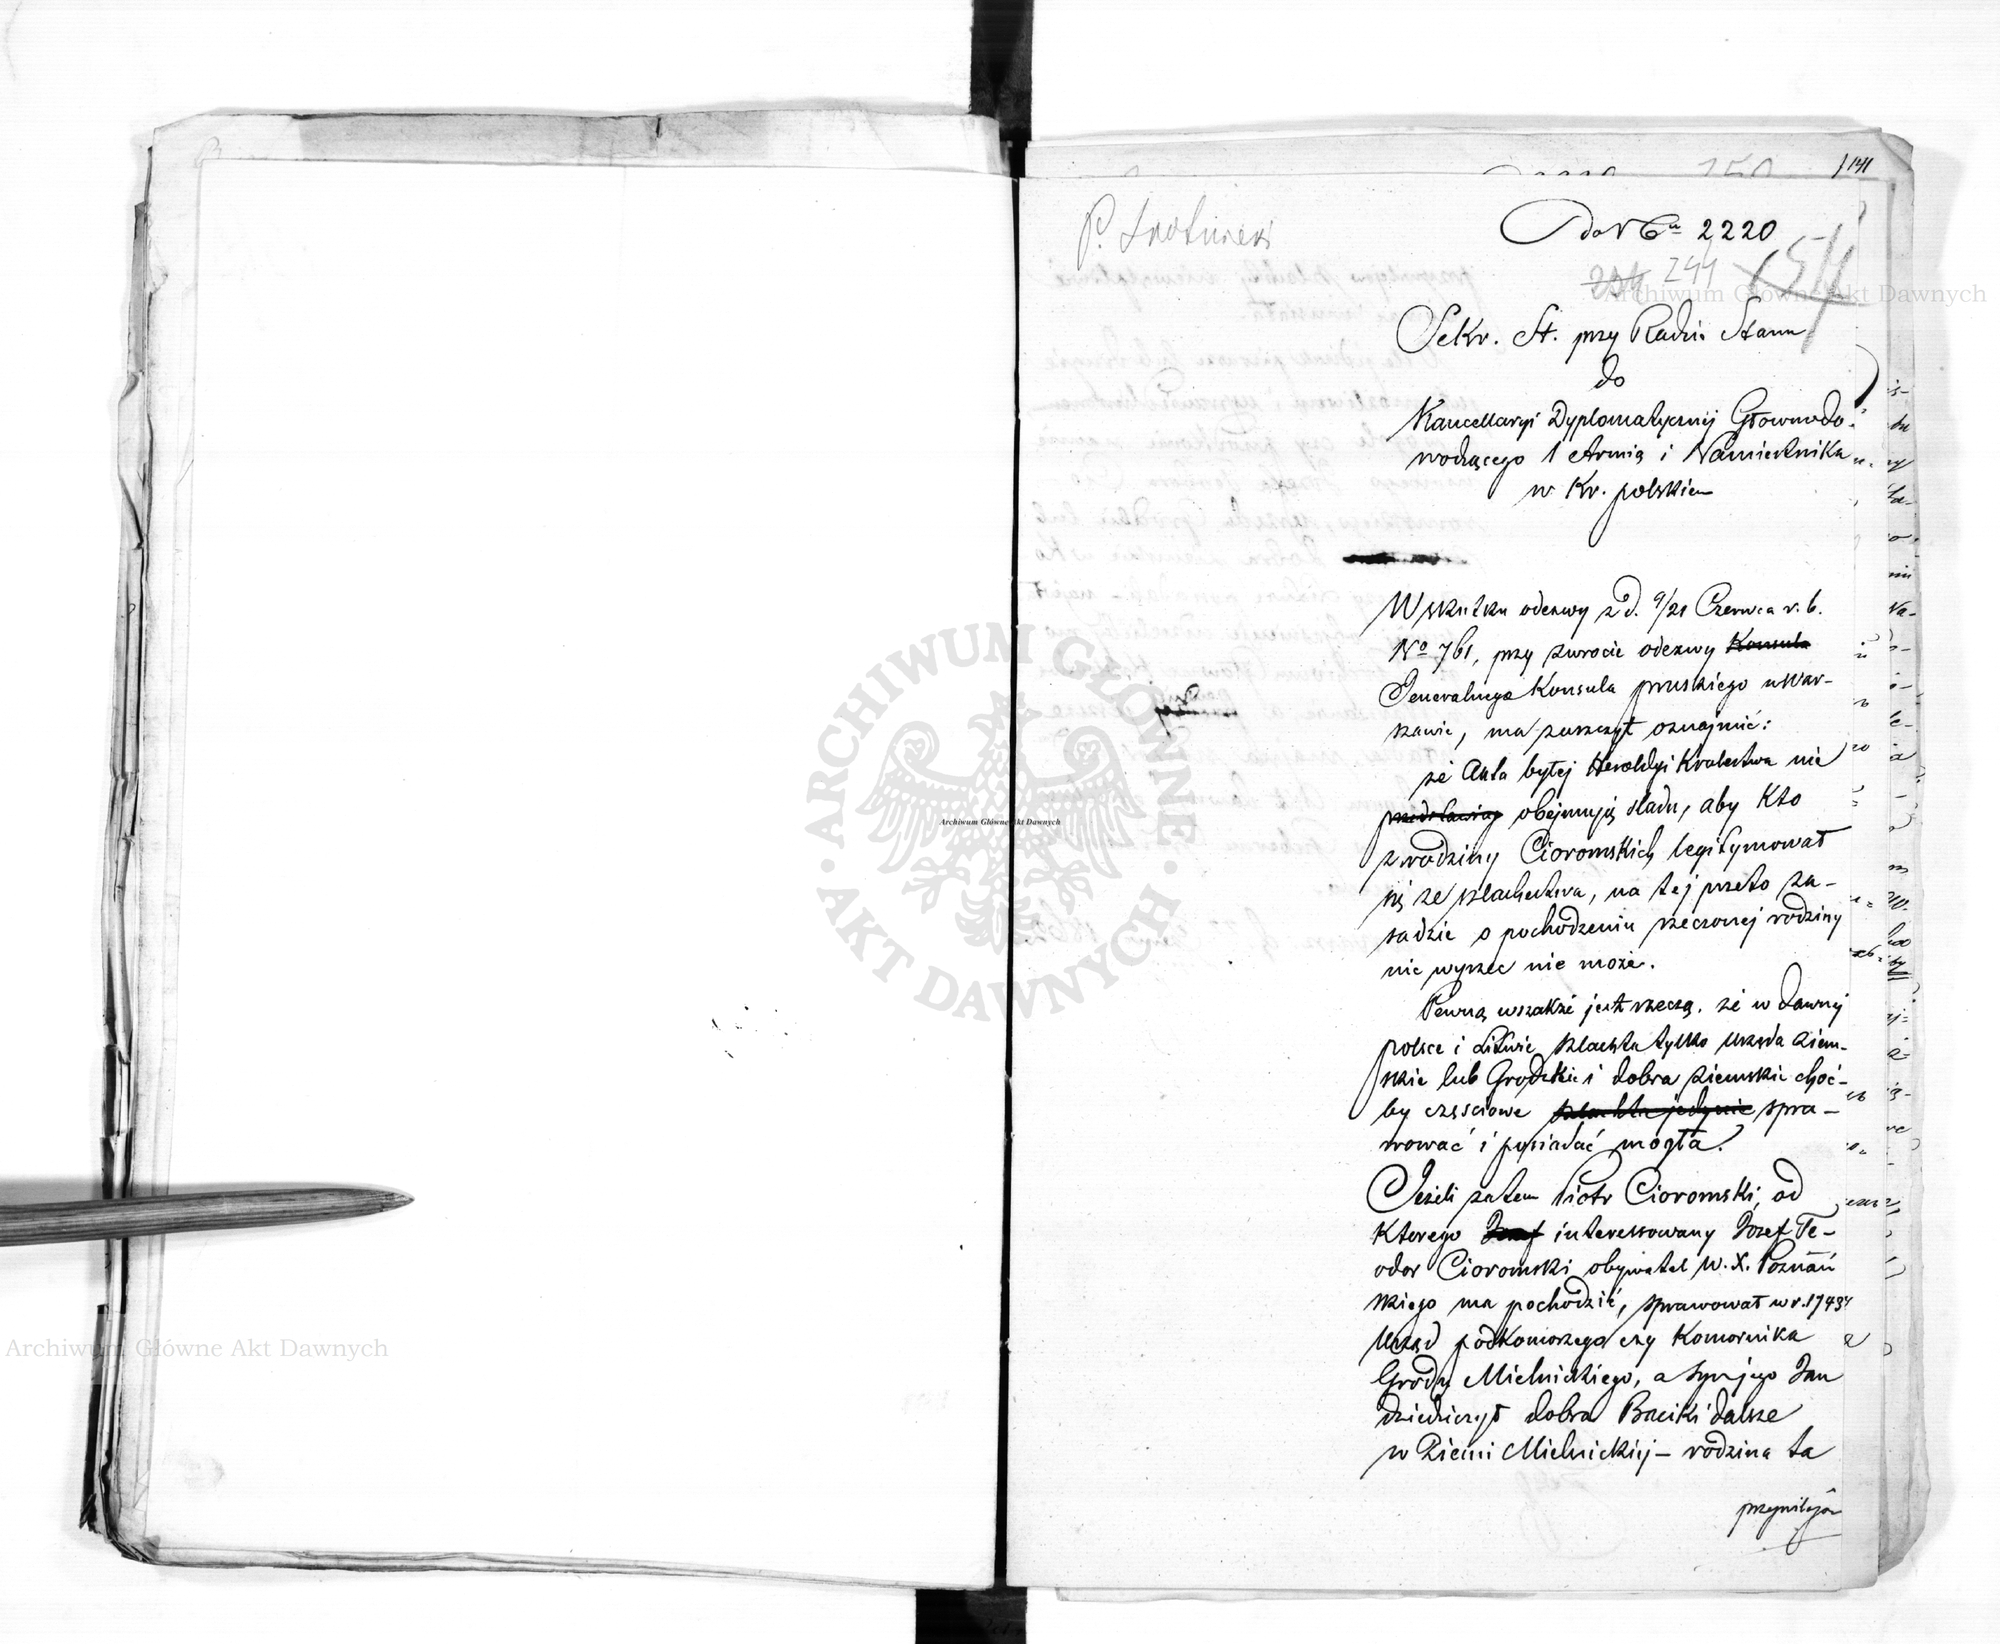 141
do N 6u 2220
204 244 154
Sekr. St. przy Radzie Stanu
do
Kancellaryi Dyplomatycznej Głównodo-
wodzącego 1 Armią i Namiestnika
w Kr. polskiem
Wskutku odezwy z d. 9/21 Czerwca r. b.
No 761, przy zwrocie odezwy Konsula
Jeneralnego Konsula pruskiego w War-
szawie, ma zaszczyt oznajmić:
że Akta byłej Heroldyi Królestwa nie
przedstawiają obejmują śladu, aby kto
z rodziny Cioromskich legitymował
się ze szlachectwa, na tej przeto za-
sadzie o pochodzeniu rzeczonej rodziny
nic wyrzec nie może.
Pewną wszakże jest rzeczą, że w dawnej
polsce i Litwie szlachta tylko urzęda ziem-
skie lub Grodzkie i dobra ziemskie choć-
by częściowe szlachta jedynie spra-
wować i posiadać mogła.
Jeżeli zatem Piotr Cioromski, od
którego Józef interessowany Józef Te-
odor Cioromski obywatel W. X. Poznań
skiego ma pochodzić, sprawował w r. 1743
Urząd podkomorzego czy Komornika
Grodu Mielnickiego, a syn jego Jan
dziedziczył dobra Baciki dalsze
w Ziemi Mielnickiej – rodzina ta
przywilejów
Archiwum Główne Akt Dawnych
Archiwum Główne Akt Dawnych
Archiwum Główne Akt Dawnych
ARCHIWUM GŁÓWNE AKT DAWNYCH